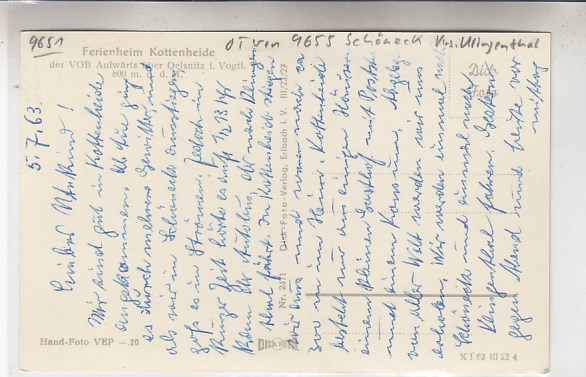 9651
OT von 9655 Schöneck Krs. Klingenthal
Ferienheim Kottenheide
der VOB Aufwärts über Oelsnitz i. Vogtl.
800 m ü. d. M.
Dick
Foto
5.7.63.
Wir sind gut in Kottenheide
angekommen. Als der Zug
es durch mehrere Gewitter und
als wir in Schöneck ausstiegen
goß es in Strömen. Jedoch in
kurzer Zeit hörte es auf. 1/2 13 Uhr
kam der Autobus, der nach Klingen
thal fährt. In Kottenheide stiegen
wir aus und waren nach ca
300 m im Heim. Kottenheide
besteht nur aus einigen Häusern
einem kleinen Gasthof mit
und einem Konsum.
von aller Welt werden wir uns
erholen. Wir werden einmal nach
Schöneck und einmal nach
Klingenthal fahren.
gegen Abend und heute vor
mittag
Nr. 2471 Dick-Foto-Verlag, Erlbach i. V. III/23/29
Hand-Foto VEP —.20
DICK FOTO
K 1 62 III 23 4